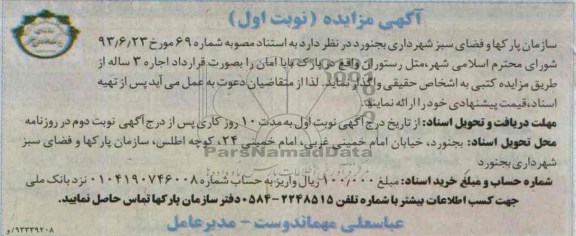 آگهی مزایده (نوبت اول)
سازمان پارکها و فضای سبز شهرداری بجنورد در نظر دارد به استناد مصوبه شماره ۶۹ مورخ ۹۳/۶/۲۳
شورای محترم اسلامی شهر، متل رستوران واقع در پارک بابا امان را بصورت قرارداد اجاره ۳ ساله از
طریق مزایده کتبی به اشخاص حقیقی واگذار نماید. لذا از متقاضیان دعوت به عمل می آید پس از تهیه
اسناد، قیمت پیشنهادی خود را ارائه نمایند.
مهلت دریافت و تحویل اسناد: از تاریخ درج آگهی نوبت اول به مدت ۱۰ روز کاری پس از درج آگهی نوبت دوم در روزنامه
محل تحویل اسناد: بجنورد، خیابان امام خمینی غربی، امام خمینی ۲۴، کوچه اطلس، سازمان پارکها و فضای سبز
شهرداری بجنورد
شماره حساب و مبلغ خرید اسناد: مبلغ ۱۰۰/۰۰۰ ریال واریز به حساب شماره ۰۱۰۴۱۹۰۷۴۶۰۰۸ نزد بانک ملی
جهت کسب اطلاعات بیشتر با شماره تلفن ۲۲۴۸۵۱۵-۰۵۸۴ دفتر سازمان پارکها تماس حاصل نمایید.
عباسعلی مهماندوست - مدیرعامل
۹۳۳۳۹۲۰۸/و
ParsNamadData